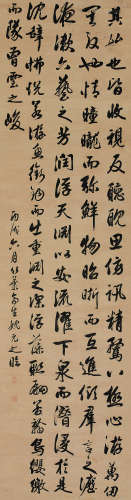 其始也皆收視反聽耽思傍訊精騖八極心游萬仞
其致也情曈曨而彌鮮物昭晰而互進傾群言之瀝
液漱六藝之芳潤浮天淵以安流濯下泉而潛浸於是
沈辭怫悅若游魚銜鉤而出重淵之深浮藻聯翩若翰鳥纓繳
而隊曾雲之峻
丙戌六月